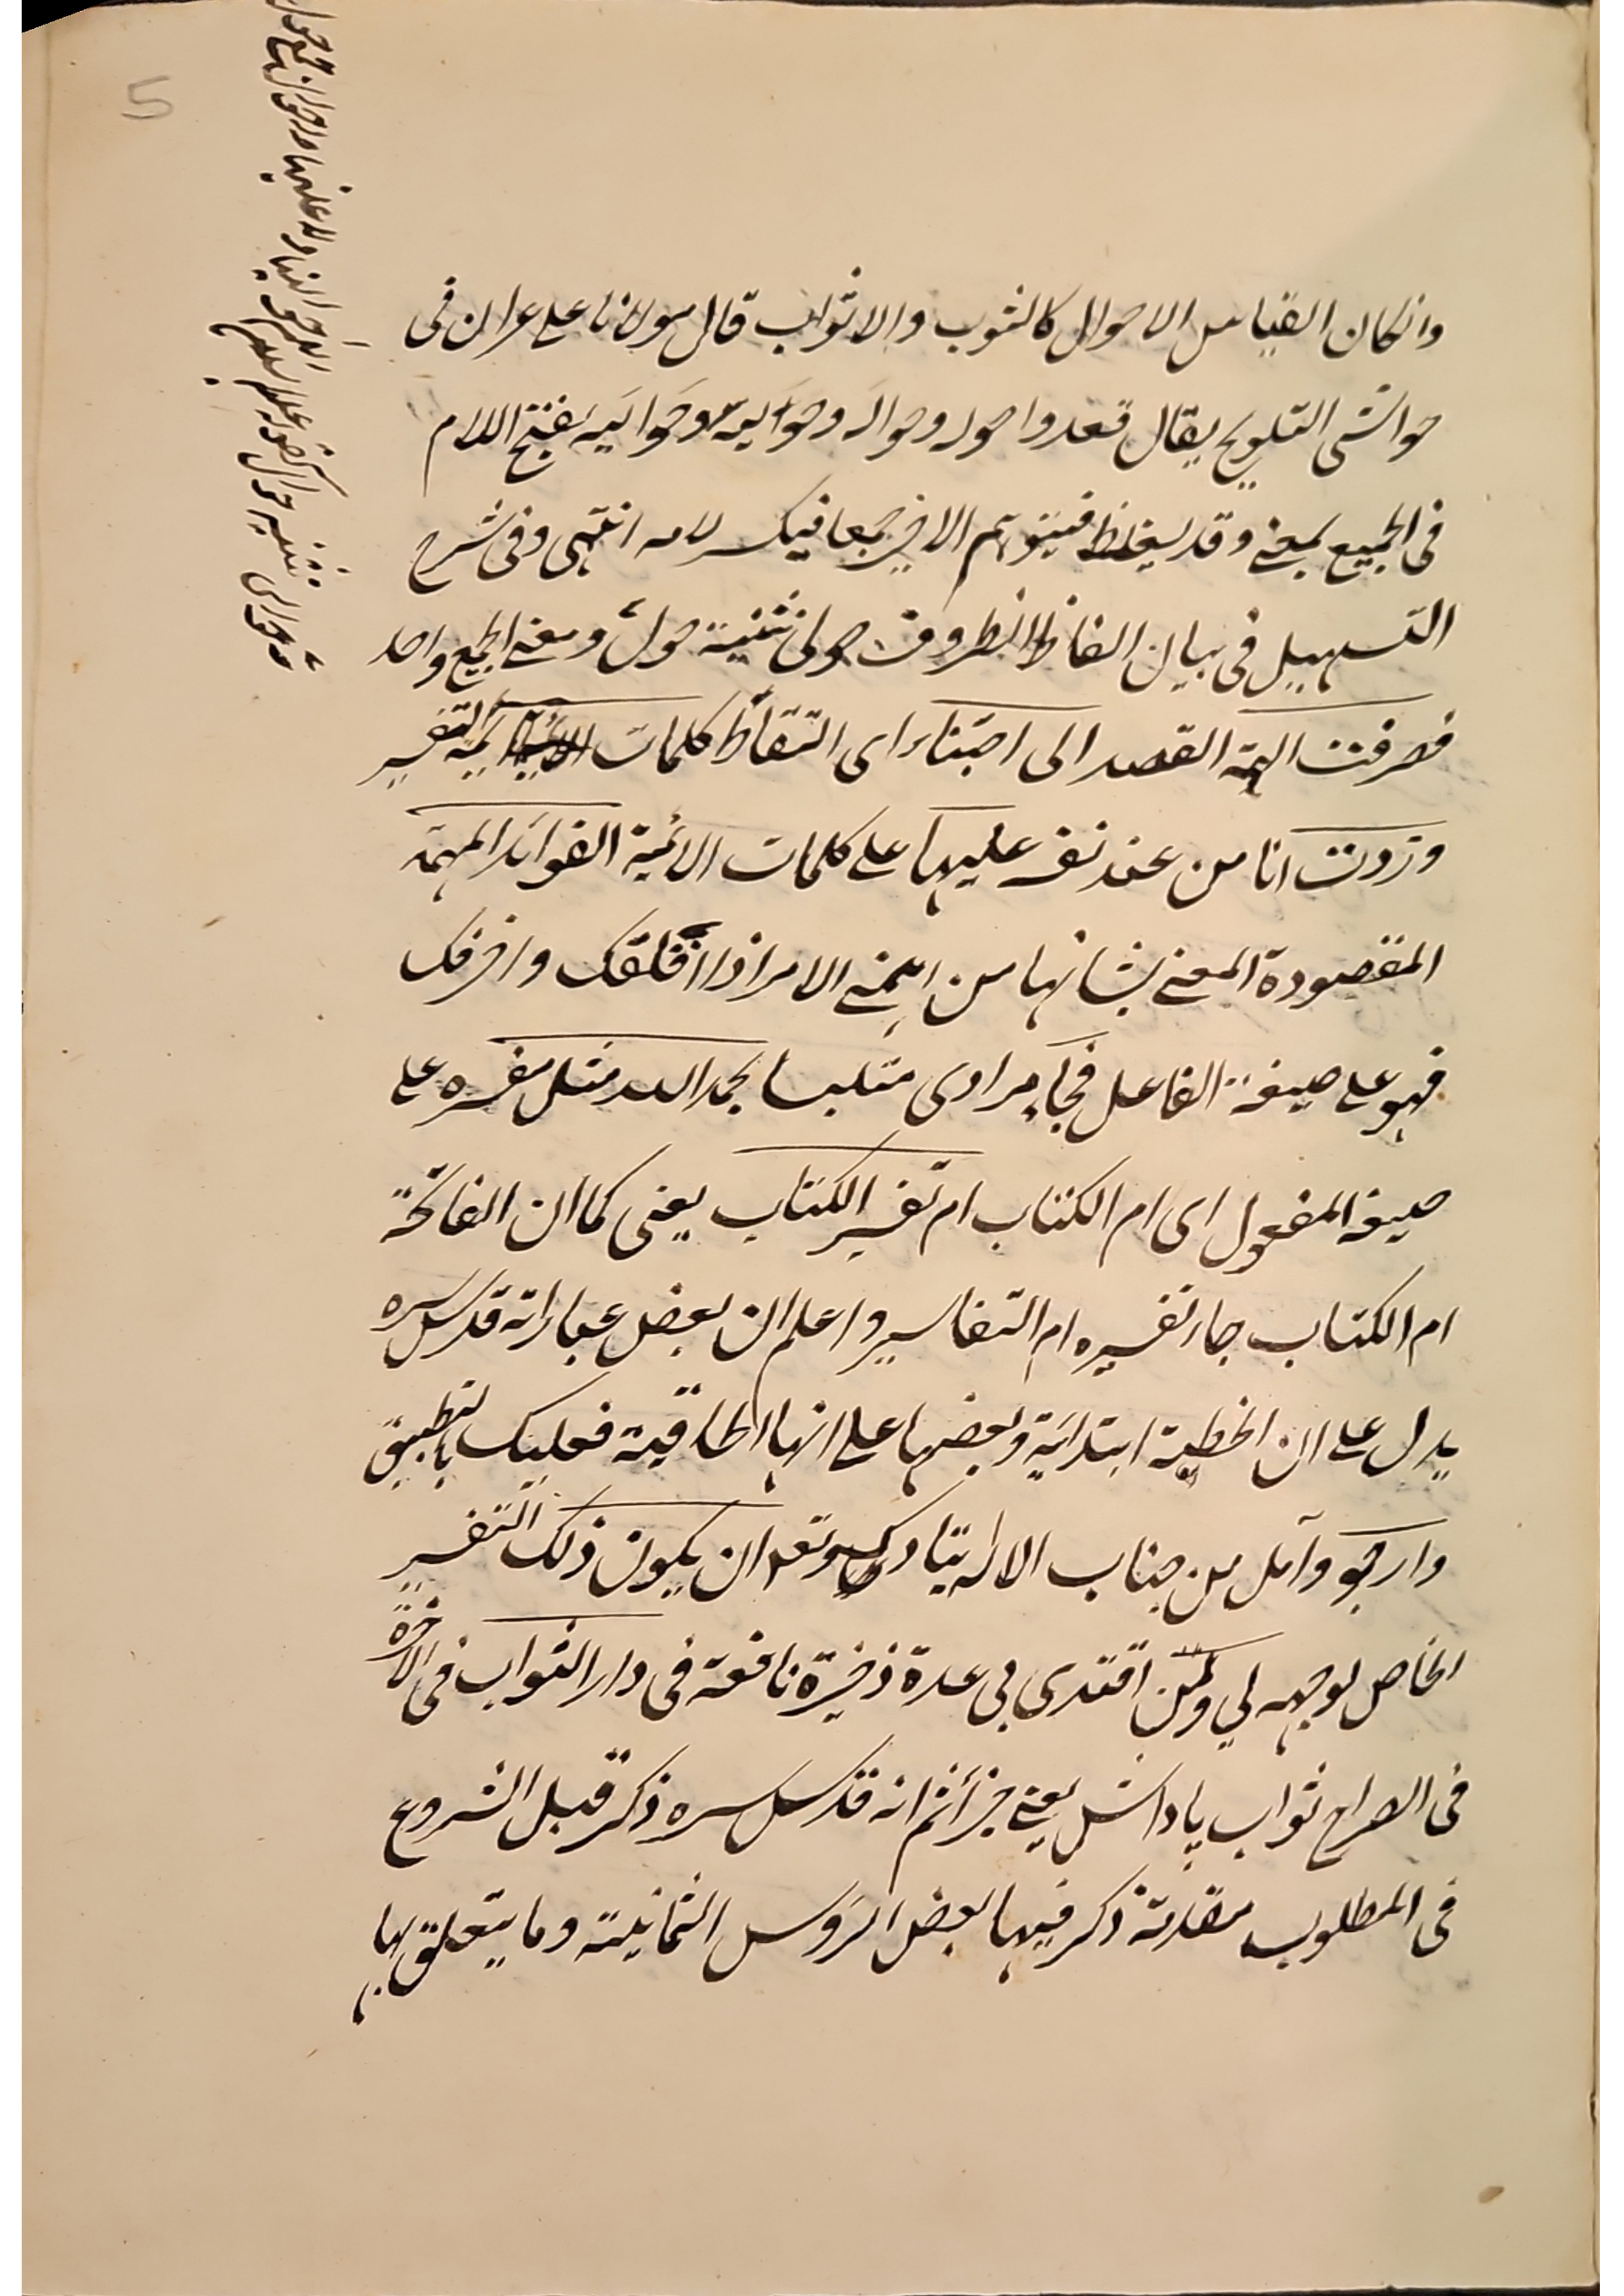 وانكان القياس الاحوال كالثوب والاثواب قال مولانا على عران فى
حواشى التلويح يقال قعدوا حوله وحواله وحوليه وحواليه بفتح اللام
فى الجميع بمعنى وقد يغلط فيتوهم الاخير جمعا فيكسر لامه انتهى وفى شرح
التسهيل فى بيان الفاظ الظروف حولى تثنية حول ومعنى الجمع واحد
فصرفت الهمة القصد الى اجتناء اى التقاط كلمات ائمة التفسير
وزدت انا من عند نفسى عليها على كلمات الائمة الفوائد المهمة
المقصودة المعنى بشانها من اهمنى الامر اذا اقلقك واحزنك
فهو على صيغة الفاعل فجاء مرادى متلبسا بحمد الله مثل مفسره على
صيغة المفعول اى ام الكتاب ام تفسير الكتاب يعنى كما ان الفاتحة
ام الكتاب صار تفسيره ام التفاسير واعلم ان بعض عباراته قدس سره
يدل على ان الخطبة ابتدائية وبعضها على انها الحاقية فعليك بالتطبيق
وارجو وآمل من جناب الاله يتبارك وتعد ان يكون ذلك التفسير
الخاص لوجهه لي ولمن اقتدى بى عدة ذخيرة نافعة فى دار الثواب فى الآخرة
فى الصراح ثواب پاداش يعنى جزاء ثم انه قدس سره ذكر قبل الشروع
فى المطلوب مقدمة ذكر فيها بعض الرؤس الثمانية وما يتعلق بها
5